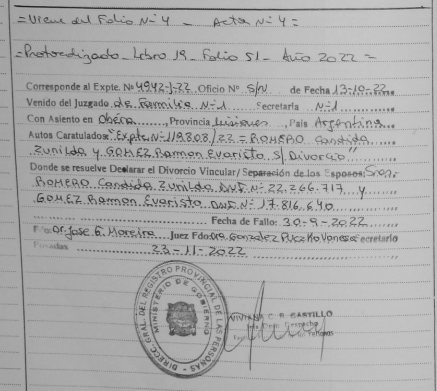 = Viene del Folio Nº 4 - Acta Nº 4 =
= Protocolizado - Libro 19 - Folio 51 - Año 2022 =
Corresponde al Expte. Nº 4942-J-22 Oficio Nº S/N de Fecha 13-10-22
Venido del Juzgado de Familia Nº 1 Secretaría Nº 1
Con Asiento en Oberá, Provincia Misiones, País Argentina
Autos Caratulados: "Expte Nº 119808/22 = ROMERO Candida
Zunilda y GOMEZ Ramon Evaristo S/ Divorcio"
Donde se resuelve Declarar el Divorcio Vincular/Separación de los Esposos: Sres.
ROMERO Candida Zunilda DNI Nº 22.266.717 y
GOMEZ Ramon Evaristo DNI Nº 17.816.640
Fecha de Fallo: 30-9-2022
Dr. Jose G. Moreira Juez Fdo: Dra. Gonzalez Vanesa Secretario
Posadas 23-11-2022
DIRECC. GRAL. DEL REGISTRO PROVINCIAL DE LAS PERSONAS
MINISTERIO DE GOBIERNO
MISIONES
VIVIANA C. B. CASTILLO
Despacho